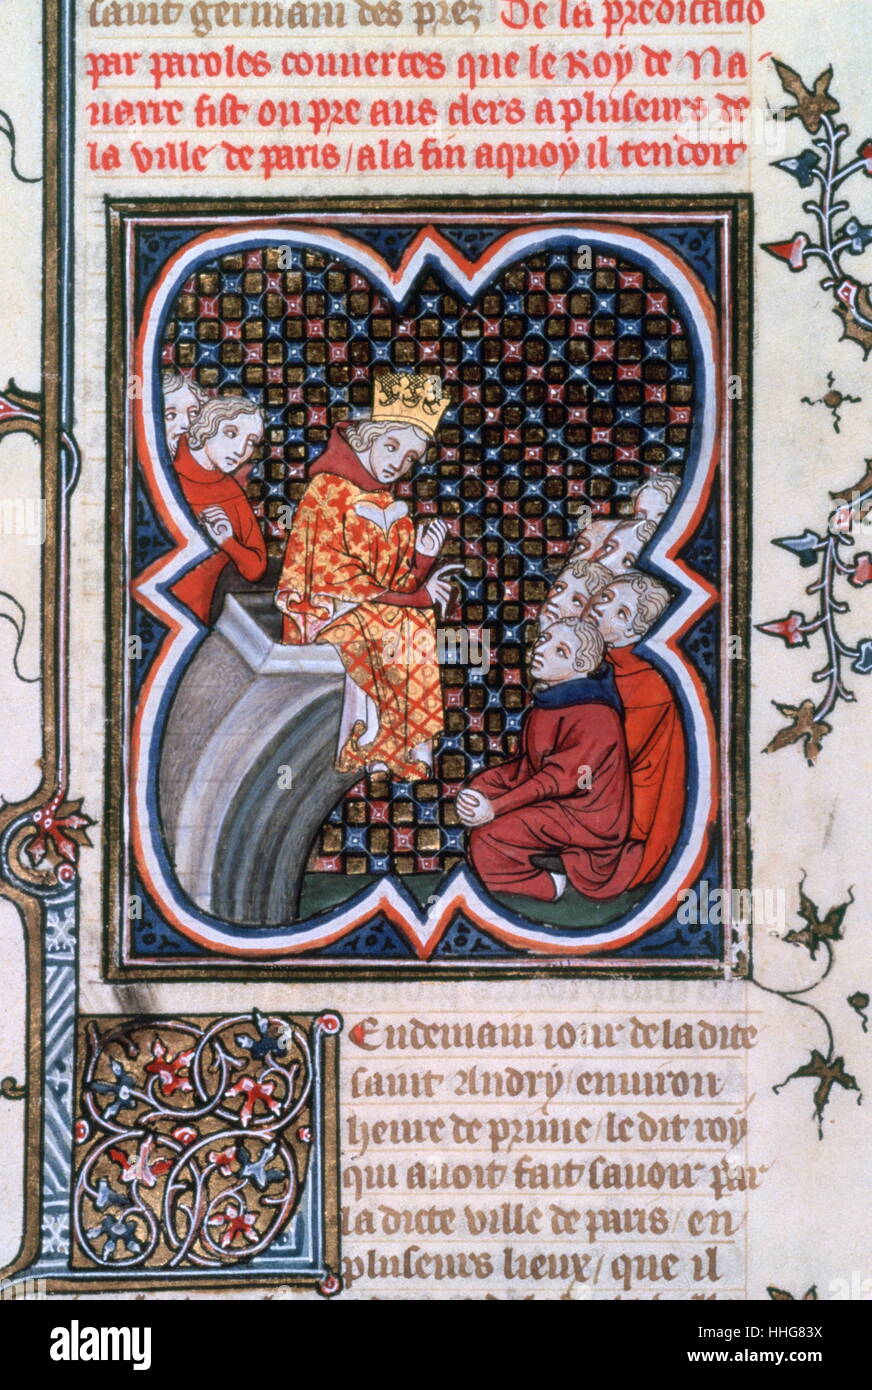 saint germain des prez De la predicatio
par paroles couvertes que le Roy de Na
uarre fist ou pre aus clers a pluseurs de
la ville de paris / a la fin a quoy il tendoit
Lendemain iour de la dite
saint Andry / enuiron
heure de prime / le dit roy
qui auoit fait sauoir par
la dicte ville de paris / en
pluseurs lieux / que il
alamy
Image ID: HHG83X
www.alamy.com